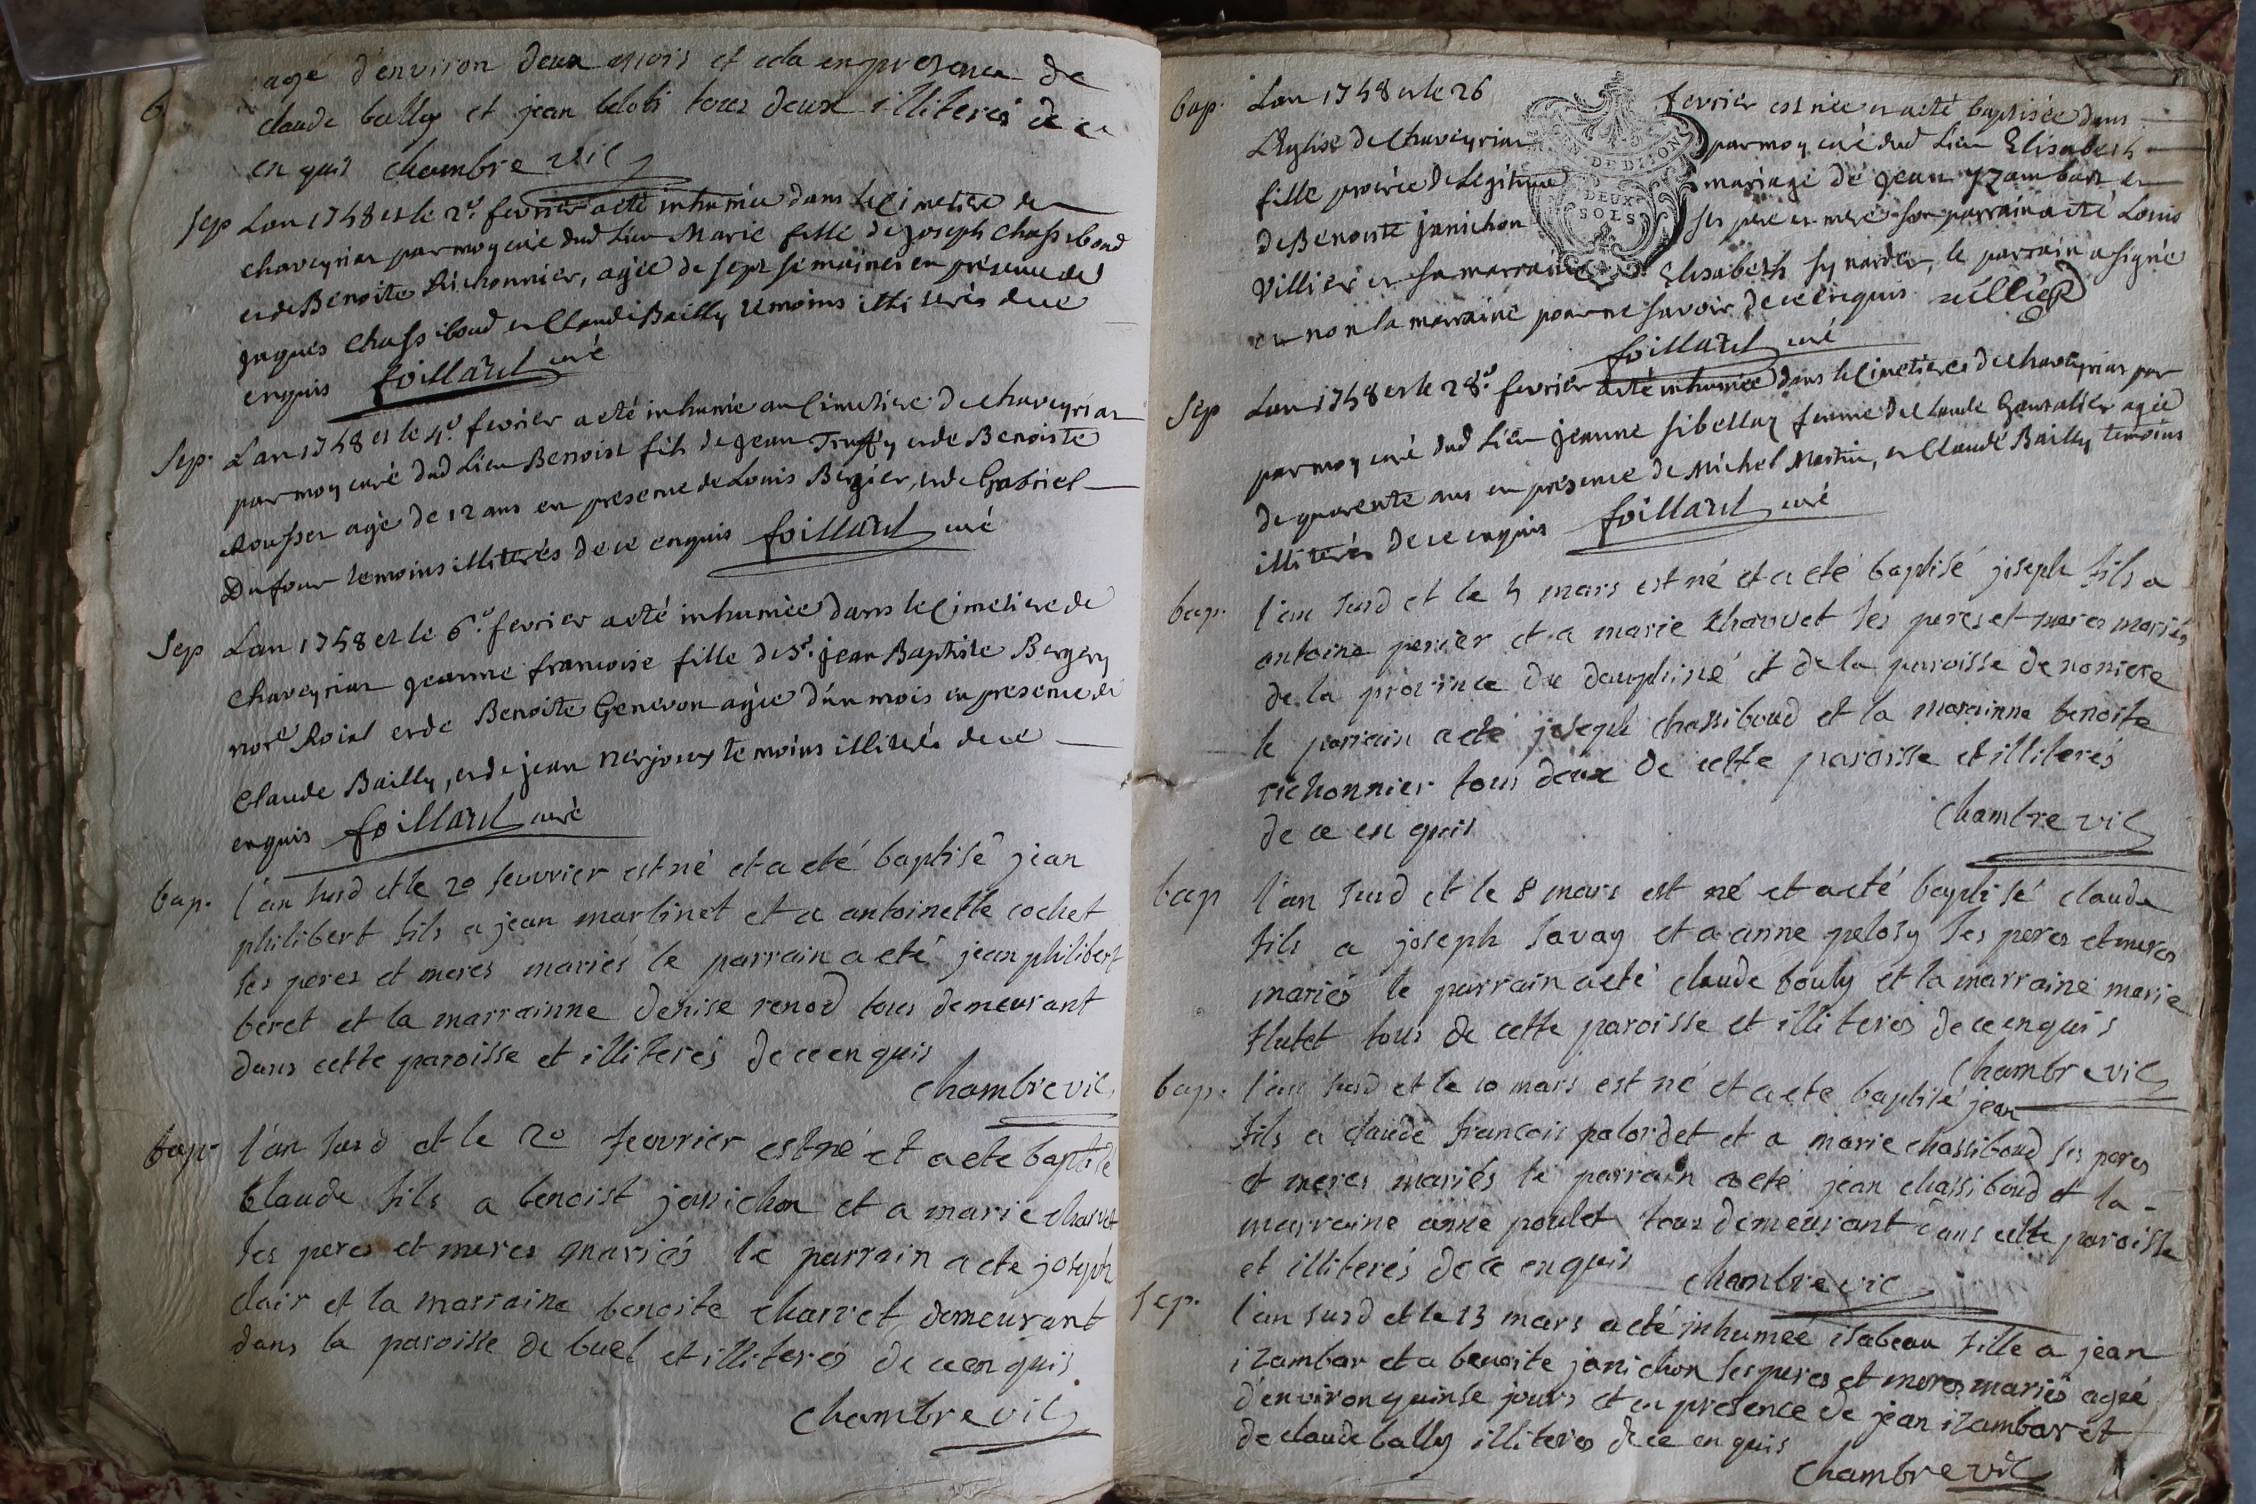 6
agé d'environ deux mois et cela en presence de
claude bally et jean belots tous deux illiterés de ce
en quis chambre vic
sep Lan 1758 et le 2e. fevrier a eté inhumée dans le Cimetiere de
chaveyriat par moy curé dud Lieu Marie fille de Joseph Chassiboud
et de Benoite Richonnier, agée de sept semaines en présence de
Jaques Chassiboud et Claude Bailly temoins illiterés de ce
enquis foillard curé
Sep. Lan 1758 et le 4e. fevrier a eté inhumé au Cimetiere de chaveyriat
par moy curé dud Lieu Benoist fils de Jean Truffy et de Benoiste
Rousset agé de 12 ans en presence de Louis Bergier, et de Gabriel
Dufour temoins illiterés de ce enquis foillard curé
Sep Lan 1758 et le 6e. fevrier a eté inhumée dans le Cimetiere de
Chaveyriat Jeanne francoise fille de Sr. Jean Baptiste Bergery
nore Roial et de Benoite Genevon agée d'un mois en presence de
Claude Bailly, et de jean nerjoux temoins illiterés de ce
enquis foillard curé
bap. l'an susd et le 20 feuvrier est né et a eté baptisé jean
philibert fils a jean martinet et a antoinette cochet
ses peres et meres mariés le parrain a eté jean philibert
beret et la marrainne denise renod tous demeurant
dans cette paroisse et illiterés de ce en quis
chambre vic
bap. l'an susd et le 20 feuvrier est né et a eté baptisé
Claude fils a benoist janichon et a marie charvet
ses peres et meres mariés le parrain a eté joseph
clair et la marraine benoite charvet demeurant
dans la paroisse de buel et illiterés de ce en quis
chambre vic
bap. Lan 1758 et le 26 fevrier est née et a eté baptisée dans
L'Eglise de Chaveyriat par moy curé dud Lieu Elisabeth
fille procrée de Legitime mariage de Jean Yzambart et
de Benoite Janichon ses pere et mere son parrain a eté Louis
Villier et sa marraine Elisabeth Synardet, le parrain a signé
et non la marraine pour ne savoir de ce enquis villier
foillard curé
DE DIJON
DEUX
SOLS
Sep Lan 1758 et le 28e. fevrier a eté inhumée dans le Cimetiere de Chaveyriat par
par moy curé dud Lieu Jeanne Sibellaz femme de Claude Gautalier agée
de quarente ans en presence de Michel Martin, et Claude Bailly temoins
illiterés de ce enquis foillard curé
bap. l'an susd et le 5 mars est né et a eté baptisé joseph fils a
antoine perier et a marie charvet ses peres et meres mariés
de la province du dauphiné et de la paroisse de noniere
le parrain a eté joseph chassiboud et la marainne benoite
richonnier tous deux de cette paroisse et illiterés
de ce en quis chambre vic
bap l'an susd et le 8 mars est né et a eté baptisé claude
fils a joseph savay et a anne pelosy ses peres et meres
mariés le parrain a eté claude bouly et la marraine marie
flutet tous de cette paroisse et illiterés de ce enquis
chambre vic
bap. l'an susd et le 10 mars est né et a eté baptisé jean
fils a claude francois palordet et a marie chassiboud ses peres
et meres mariés le parrain a eté jean chassiboud et la
marraine anne poulet tous demeurant dans cette paroisse
et illiterés de ce en quis chambre vic
sep. l'an susd et le 13 mars a eté inhumeé isabeau fille a jean
izambar et a benoite janichon ses peres et meres mariés ageé
d'environ quinse jours et en presence de jean izambar et
de claude bally illiterés de ce en quis
chambre vic